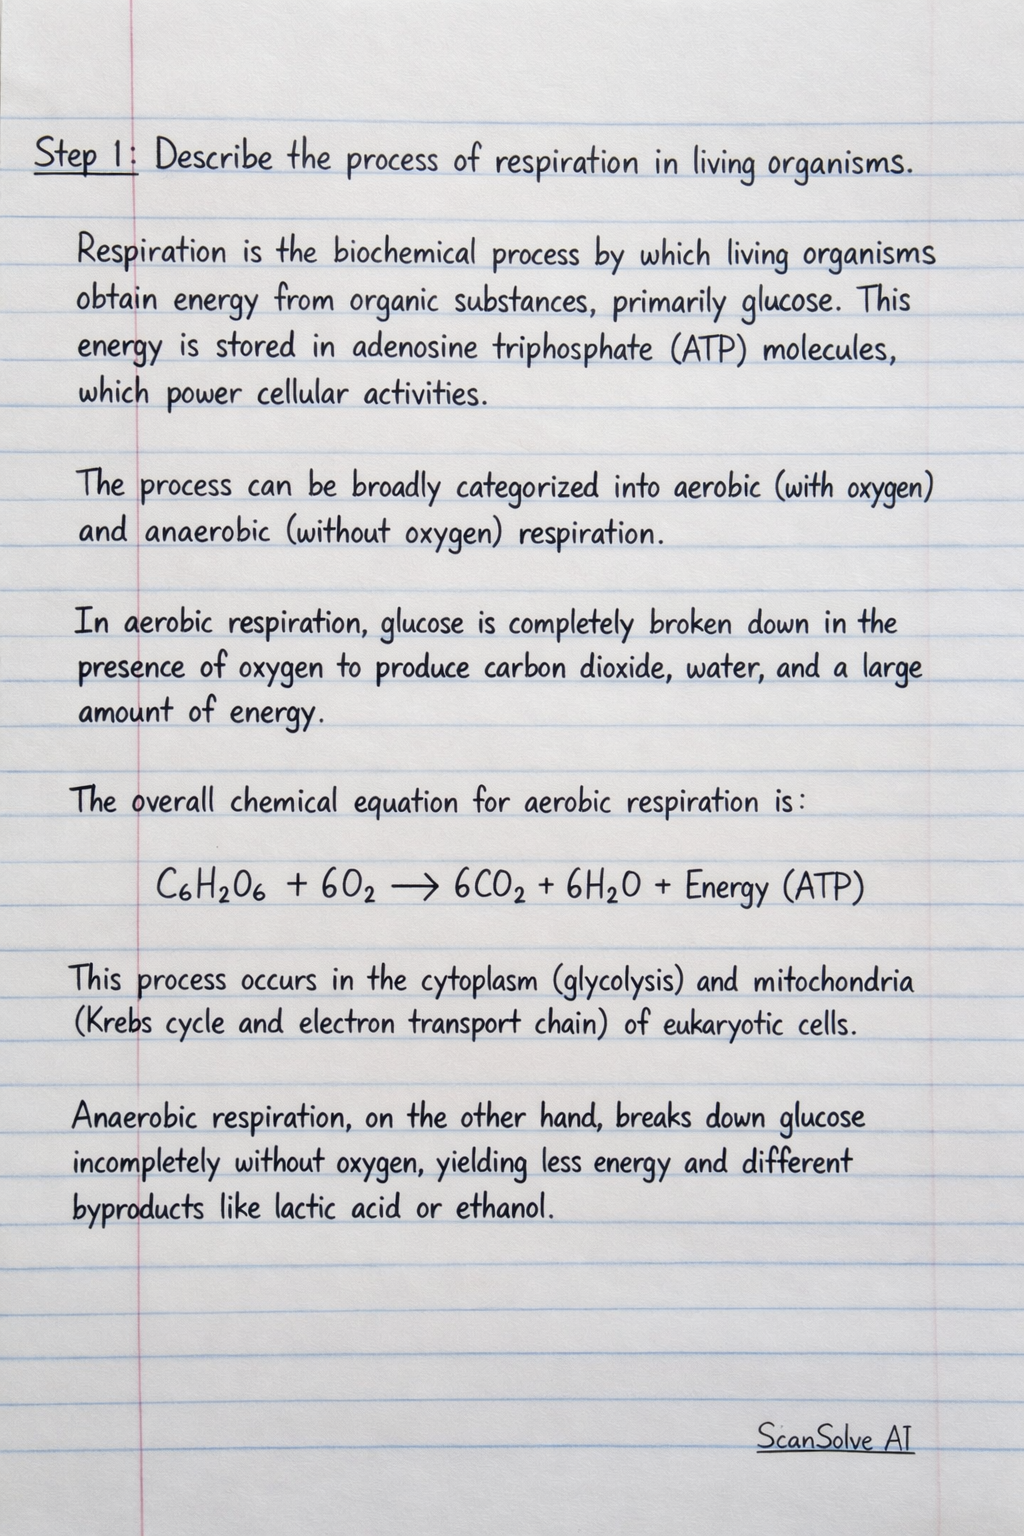 Step 1: Describe the process of respiration in living organisms.
Respiration is the biochemical process by which living organisms
obtain energy from organic substances, primarily glucose. This
energy is stored in adenosine triphosphate (ATP) molecules,
which power cellular activities.
The process can be broadly categorized into aerobic (with oxygen)
and anaerobic (without oxygen) respiration.
In aerobic respiration, glucose is completely broken down in the
presence of oxygen to produce carbon dioxide, water, and a large
amount of energy.
The overall chemical equation for aerobic respiration is:
C₆H₂O₆ + 6O₂ → 6CO₂ + 6H₂O + Energy (ATP)
This process occurs in the cytoplasm (glycolysis) and mitochondria
(Krebs cycle and electron transport chain) of eukaryotic cells.
Anaerobic respiration, on the other hand, breaks down glucose
incompletely without oxygen, yielding less energy and different
byproducts like lactic acid or ethanol.
ScanSolve AI